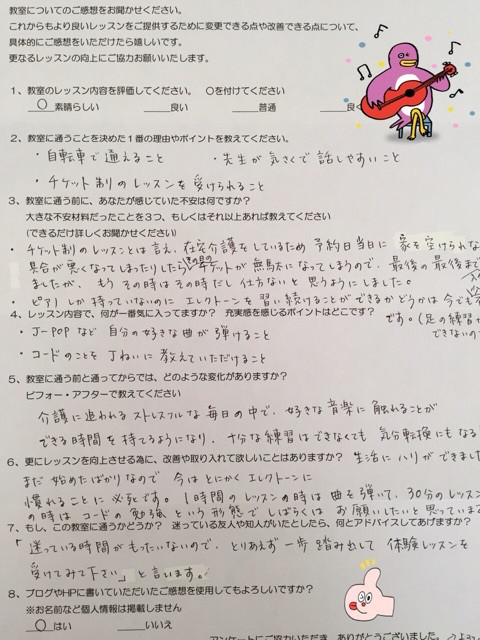 教室についてのご感想をお聞かせください。
これからもより良いレッスンをご提供するために変更できる点や改善できる点について、
具体的にご感想をいただけたら嬉しいです。
更なるレッスンの向上にご協力お願いいたします。
1、教室のレッスン内容を評価してください。 〇を付けてください
〇 素晴らしい 良い 普通 良く
2、教室に通うことを決めた1番の理由やポイントを教えてください。
・自転車で通えること ・先生が気さくで話しやすいこと
・チケット制のレッスンを受けられること
3、教室に通う前に、あなたが感じていた不安は何ですか?
大きな不安材料だったことを3つ、もしくはそれ以上あれば教えてください
(できるだけ詳しくお聞かせください)
・チケット制のレッスンとは言え、在宅介護をしているため 予約日当日に 家を空けられな
具合が悪くなってしまったりしたら チケットが無駄になってしまうので、最後の最後まで
ましたが、もう その時はその時だし仕方ないと思うようにしました。
・ピアノしか持っていないのに エレクトーンを習い続けることができるかどうかは今でも不
4、レッスン内容で、何が一番気に入ってますか? 充実感を感じるポイントはどこです?
です。(足の練習が
できないので
・J-POPなど 自分の好きな曲が弾けること
・コードのことを丁ねいに教えていただけること
5、教室に通う前と通ってからでは、どのような変化がありますか?
ビフォー・アフターで教えてください
介護に追われるストレスフルな毎日の中で、好きな音楽に触れることが
できる時間を持てるようになり、十分な練習はできなくても 気分転換にもなる
6、更にレッスンを向上させる為に、改善や取り入れて欲しいことはありますか?
生活にハリができました
まだ始めたばかりなので 今はとにかくエレクトーンに
慣れることに必死です。1時間のレッスンの時は曲を弾いて、30分のレッスン
の時はコードの勉強という形態でしばらくは お願いしたいと思っています
7、もし、この教室に通うかどうか? 迷っている友人や知人がいたとしたら、何とアドバイスしてあげますか?
「迷っている時間がもったいないので、とりあえず一歩踏み出して 体験レッスンを
受けてみて下さい」と言います。
8、ブログやHPに書いていただいたご感想を使用してもよろしいですか?
※お名前など個人情報は掲載しません
〇 はい いいえ
アンケートにご協力いただき、ありがとうございました。